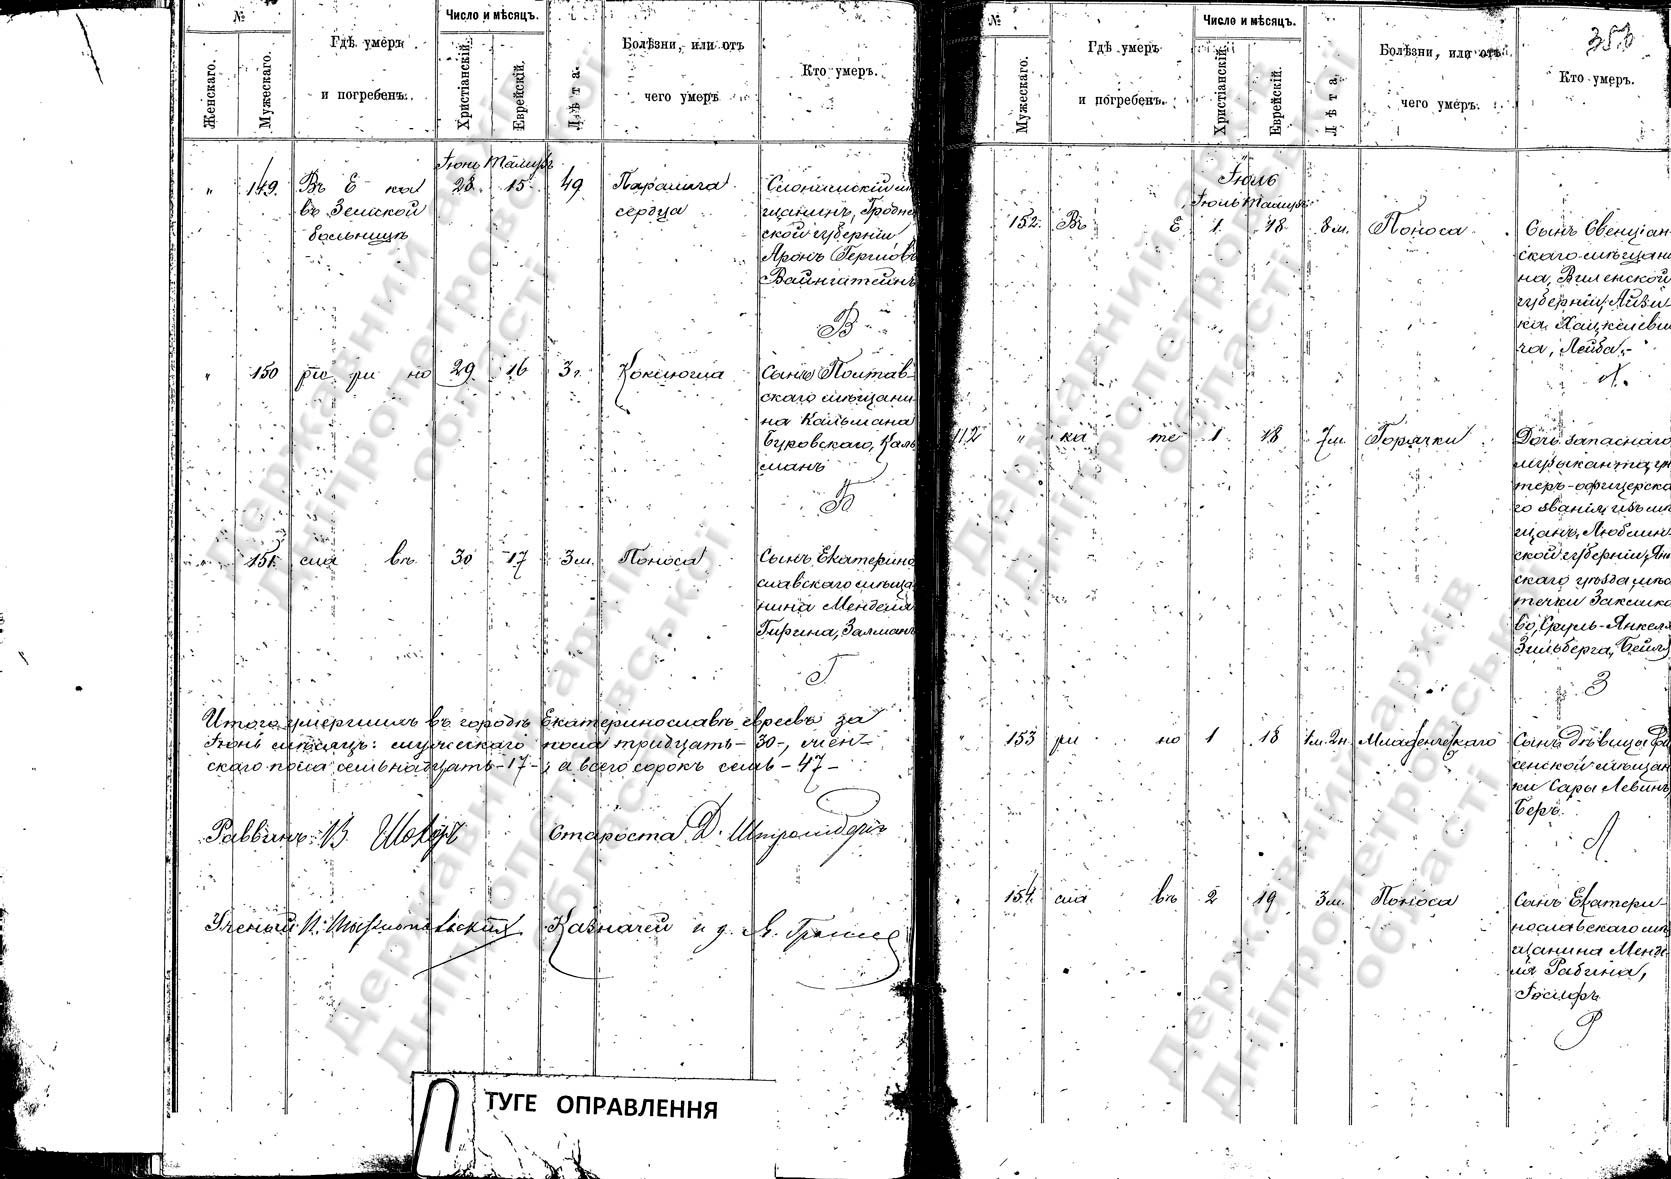 №
Женскаго.
Мужескаго.
Гдѣ умеръ
и погребенъ.
Число и мѣсяцъ.
Христіанскій.
Еврейскій.
Лѣта.
Болѣзни, или отъ
чего умеръ
Кто умеръ.
Іюнь Тамузъ
" 149. Въ Е ка 28. 15. 49 Параличa Слонимскій мѣ
въ Земской сердца щанинъ, Гродне
больницѣ ской губерніи
Аронъ Гершовъ
Вайнштейнъ
В
" 150 ри но 29. 16 3г. Коклюша Сынъ Полтав
скаго мѣщани
на Кальмана
Буровскаго, Каль
манъ
Б
151. сла въ 30 17 3м. Поноса Сынъ Екатерино
славскаго мѣща
нина Менделя
Гиргина, Залманъ
Г
Итого умершихъ въ городѣ Екатеринославѣ евреевъ за
Іюнь мѣсяцъ: мужескаго пола тридцать - 30 -, жен-
скаго пола семьнадцать - 17 -, а всего сорокъ семь - 47 -
Раввинъ В. Староста Д.
Ученый Казначей и д.
ТУГЕ ОПРАВЛЕННЯ
353
№
Мужескаго.
Гдѣ умеръ
и погребенъ.
Число и мѣсяцъ.
Христіанскій.
Еврейскій.
Лѣта
Болѣзни, или отъ
чего умеръ.
Кто умеръ.
Іюль
Іюль Тамузъ
152. Въ Е 1. 18 8м. Поноса Сынъ Свенціан
скаго мѣщани
на, Виленской
губерніи, Айзи-
ка Хацкелеви
ча, Лейба.
Х.
112 " ка те 1 18 7м. Горячки Дочь запаснаго
музыканта ун
теръ-офицерска
го званія, изъ мѣ
щанъ, Люблин
ской губерніи, Яно
скаго уѣзда мѣс
течки Закликo
во, Сруль-Янкеля
Зильберга, Бейля
З
" 153 ри но 1 18 1м. 2н. Младенческаго Сынъ дѣвицы
сенской мѣщан
ки Сары Левинъ,
Беръ.
Л
154. сла въ 2 19 3м. Поноса Сынъ Екатери-
нославскаго мѣ
щанина Менде
ля Рабина,
Іосифъ
Р
Державний архів
Дніпропетровської
області